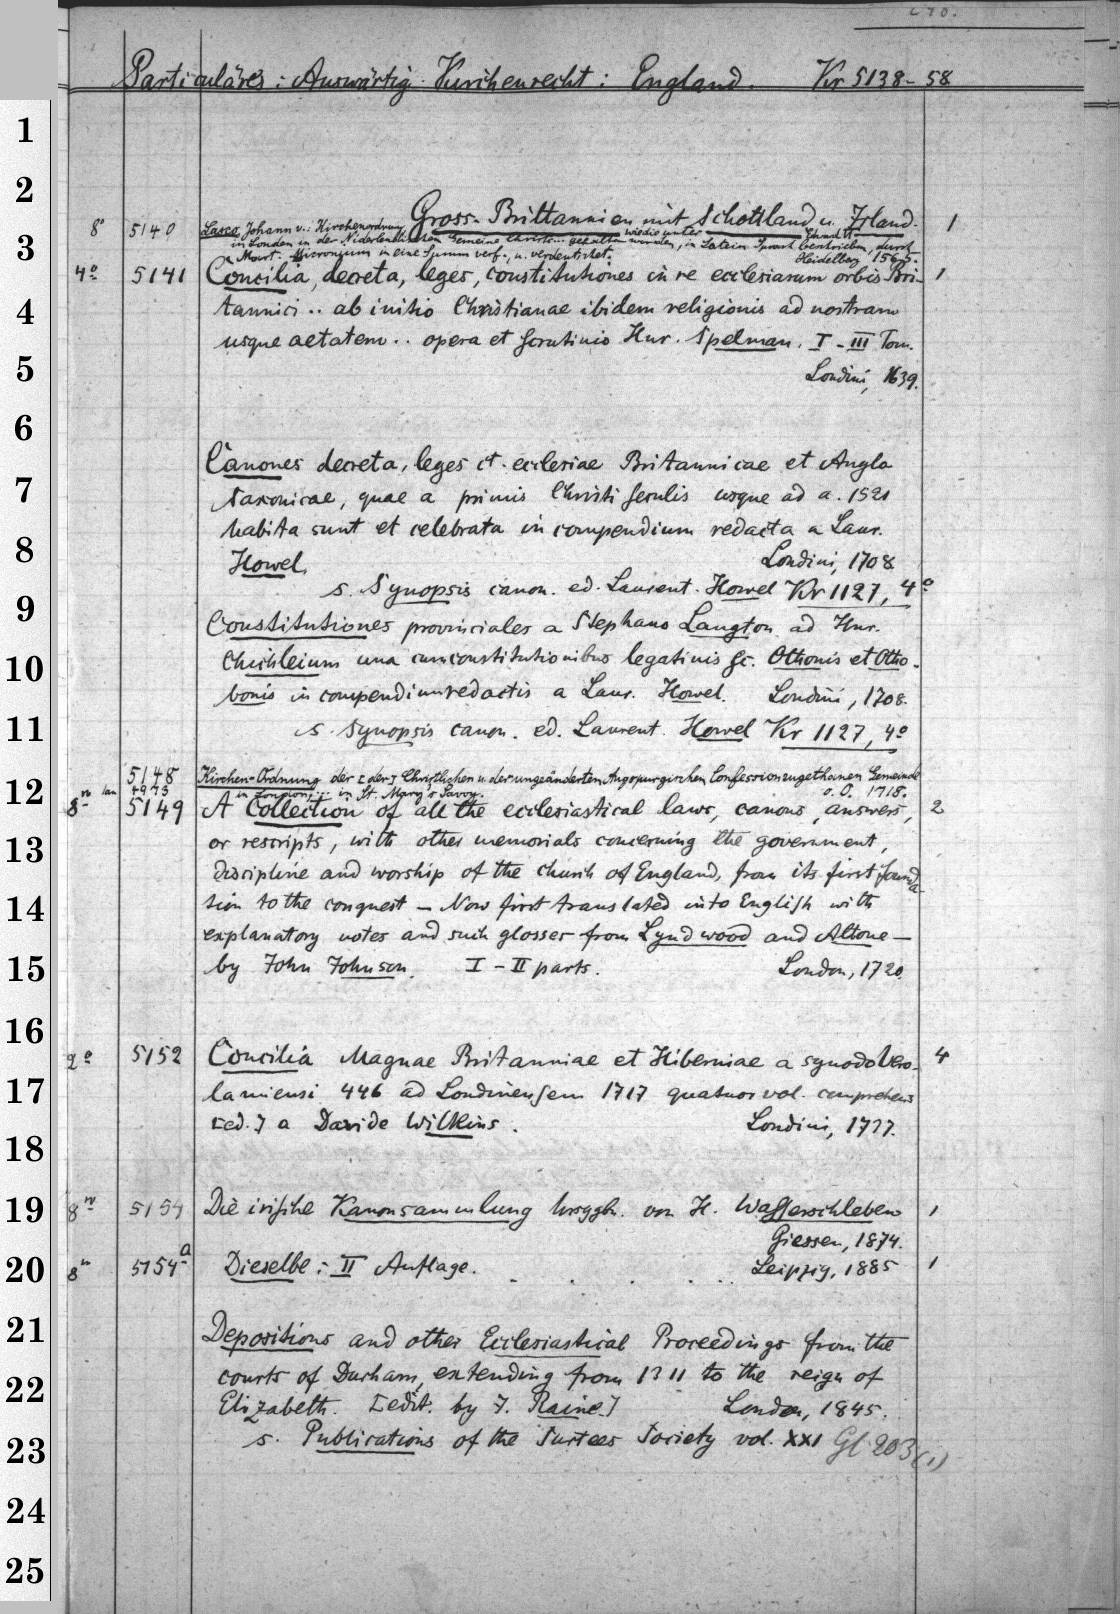 Particuläres: Auswärtig. Kirchenrecht: England. Kr 5138-58
Gross-Brittannien mit Schottland u. Irland.
8° 5140 Lasco, Johann v.: Kirchenordnung wie die unter 1
in London in der Niderlendischen Gemeine Christi gehalten worden, in Latein beschrieben, durch
Mart. Micronium in eine Summ verf., u. verdeutschet. Heidelberg 1565.
4° 5141 Concilia, decreta, leges, constitutiones in re ecclesiarum orbis Bri- 1
tannici .. ab initio Christianae ibidem religionis ad nostram
usque aetatem .. opera et scrutinio Hnr. Spelman. I-III Tom.
Londini, 1639.
Canones decreta, leges et ecclesiae Britannicae et Anglo
saxonicae, quae a primis Christi seculis usque ad a. 1521
habita sunt et celebrata in compendium redacta a Laur.
Howel. Londini, 1708
s. Synopsis canon. ed. Laurent. Howel Kr 1127, 4°
Constitutiones provinciales a Stephano Langton ad Hnr.
Chichleium una cum constitutionibus legatinis sc. Othonis et Otho-
bonis in compendium redactis a Laur. Howel. Londini, 1708.
s. Synopsis canon. ed. Laurent. Howel Kr 1127, 4°
5148 Kirchen-Ordnung der [der] Christlichen u. der ungeänderten Augspurgischen Confession zugethanen Gemeinde
in London,... in St. Mary's Savoy. o. O. 1718.
8° 5149 A Collection of all the ecclesiastical laws, canons, answers, 2
or rescripts, with other memorials concerning the government,
discipline and worship of the church of England, from its first founda-
tion to the conquest — Now first translated into English with
explanatory notes and such glosses from Lyndwood and Altone —
by John Johnson. I-II parts. London, 1720.
2° 5152 Concilia Magnae Britanniae et Hiberniae a synodo Vero- 4
lamiensi 446 ad Londinensem 1717 quatuor vol. comprehens
[ed.] a Davide Wilkins. Londini, 1727.
8° 5154 Die irische Kanonsammlung hrsggb. von H. Wasserschleben 1
Giessen, 1874.
8° 5154a Dieselbe: II Auflage. Leipzig, 1885 1
Depositions and other Ecclesiastical Proceedings from the
courts of Durham, extending from 1311 to the reign of
Elizabeth. [edit. by J. Raine] London, 1845.
s. Publications of the Surtees Society vol. XXI Gl 203 (1)
1
2
3
4
5
6
7
8
9
10
11
12
13
14
15
16
17
18
19
20
21
22
23
24
25